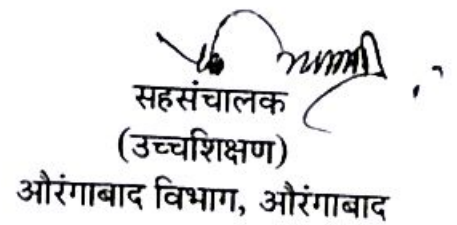 सहसंचालक
(उच्चशिक्षण)
औरंगाबाद विभाग, औरंगाबाद